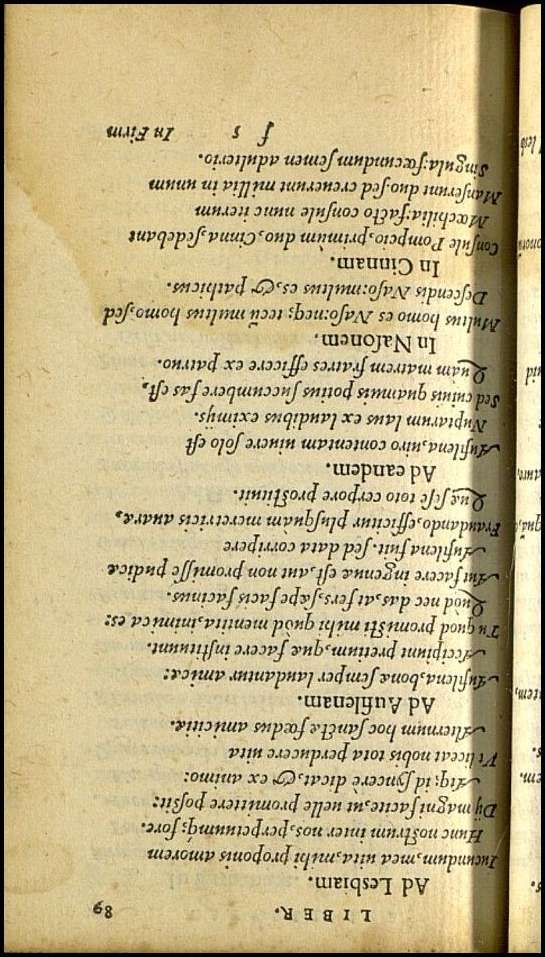 LIBER. 89
Ad Lesbiam.
Iucundum, mea uita, mihi proponis amorem
Hunc nostrum inter nos, perpetuumq; fore.
Dij magni facite, ut uelle promittere possit:
Atq; id syncerè dicat, & ex animo:
Vt liceat nobis tota perducere uita
Alternum hoc sanctæ fœdus amicitiæ.
Ad Aufilenam.
Aufilena, bonæ semper laudantur amicæ:
Accipiunt pretium, quæ facere instituunt.
Tu quod promisti mihi quòd mentita, inimica es:
Quòd nec das, at fers, sæpe facis facinus.
Aut facere ingenuæ est, aut non promisse pudicæ
Aufilena fuit. sed data corripere
Fraudando, efficitur plusquàm meretricis auaræ,
Quæ sese toto corpore prostituit.
Ad eandem.
Aufilena, uiro contentam uiuere solo est
Nuptarum laus ex laudibus eximijs.
Sed cuiuis quamuis potius succumbere fas est,
Quàm matrem fratres efficere ex patruo.
In Nasonem.
Multus homo es Naso: neq; tecũ multus homo, sed
Descendis Naso: multus es, & pathicus.
In Cinnam.
Consule Pompeio, primùm duo, Cinna, sedebant
Mœchilia: facto consule nunc iterum
Manserunt duo. sed creuerunt millia in unum
Singula: fœcundum semen adulterio.
f 5 In Firm